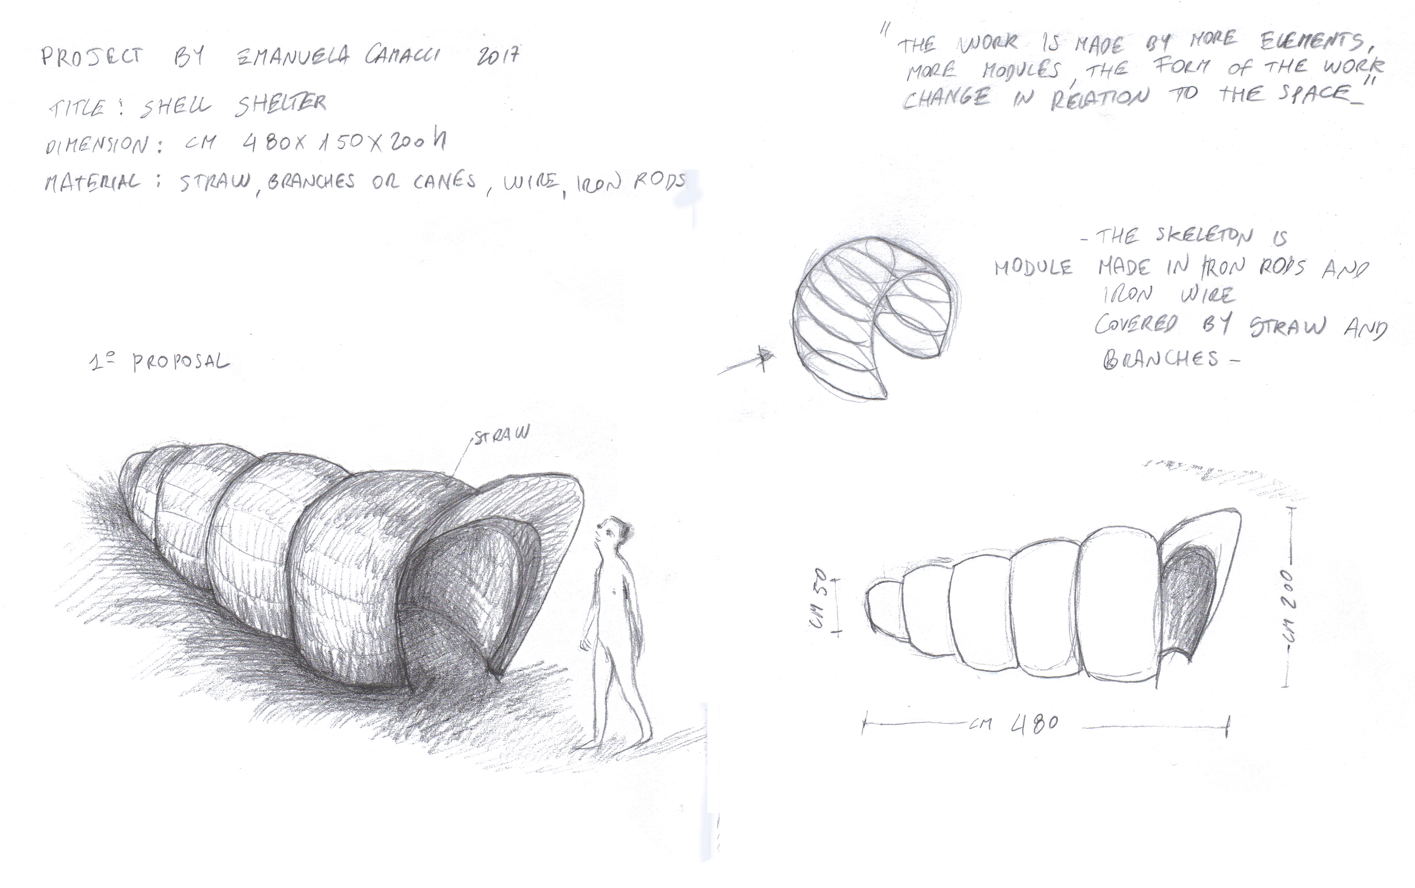 PROJECT BY EMANUELA CAMACCI 2017
TITLE: SHELL SHELTER
DIMENSION: CM 480X150X200h
MATERIAL: STRAW, BRANCHES OR CANES, WIRE, IRON RODS
1º PROPOSAL
STRAW
"THE WORK IS MADE BY MORE ELEMENTS,
MORE MODULES, THE FORM OF THE WORK
CHANGE IN RELATION TO THE SPACE_"
- THE SKELETON IS
MODULE MADE IN IRON RODS AND
IRON WIRE
COVERED BY STRAW AND
BRANCHES -
CM 50
CM 200
CM 480